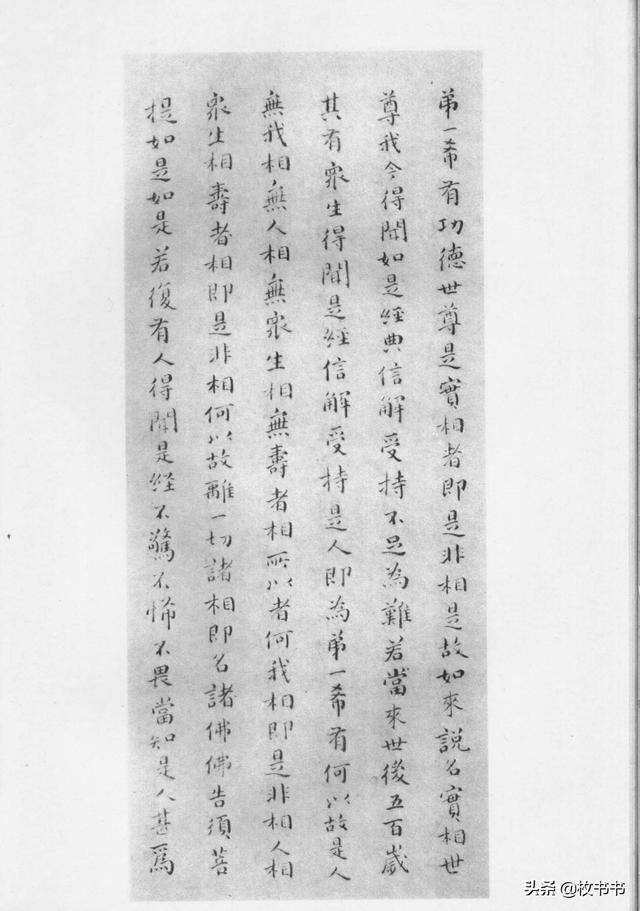 第一希有功德世尊是實相者即是非相是故如來說名實相世
尊我今得聞如是經典信解受持不足為難若當來世後五百歲
其有衆生得聞是經信解受持是人即為第一希有何以故是人
無我相無人相無衆生相無壽者相所以者何我相即是非相人相
衆生相壽者相即是非相何以故離一切諸相即名諸佛佛告須菩
提如是如是若復有人得聞是經不驚不怖不畏當知是人甚爲
头条 @枚书书